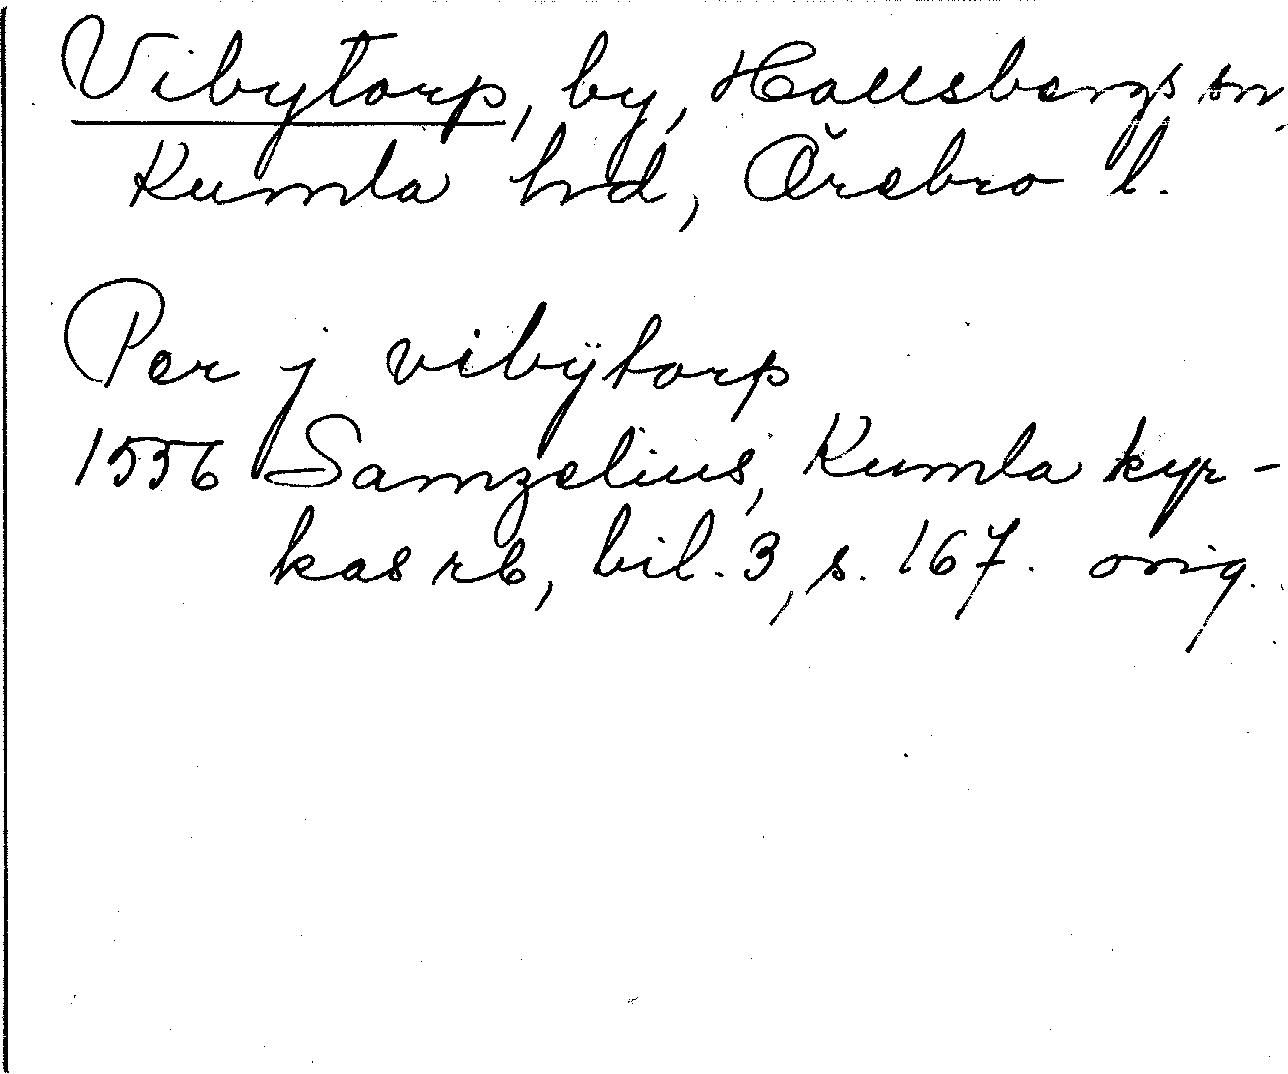 Vibytorp, by, Hallsbergs sn,
Kumla hd, Örebro l.
Per j vibÿtorp
1556 Samzelius, Kumla kyr-
kas rb, bil. 3, s. 167. orig.